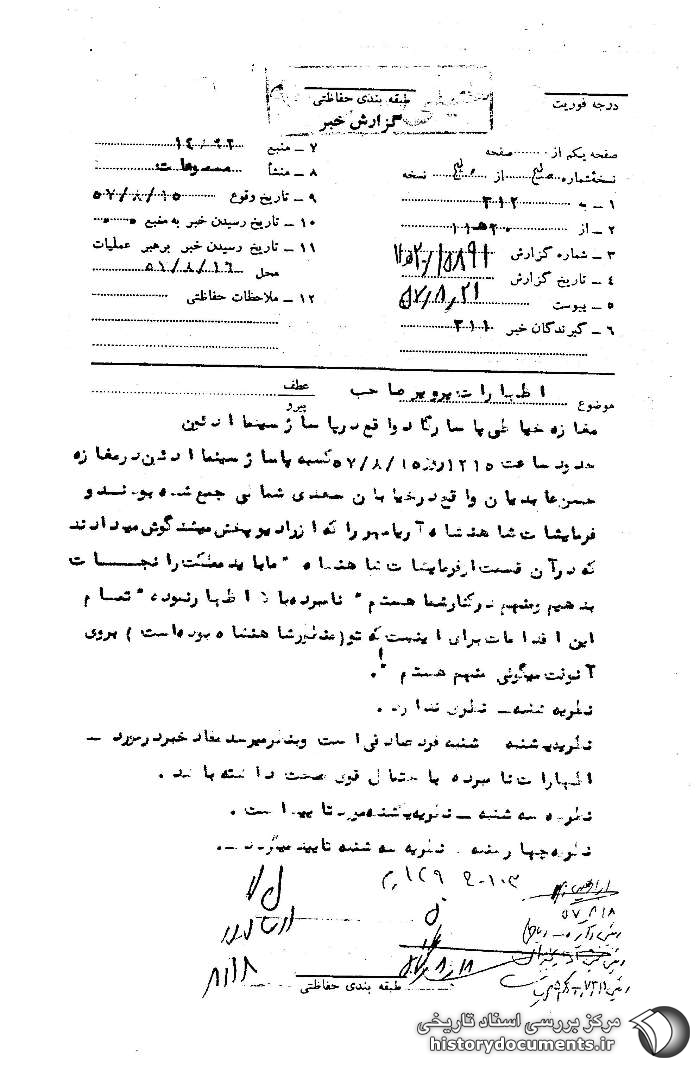 طبقه بندی حفاظتی
گزارش خبر
درجه فوریت
صفحه یکم از صفحه
نسخه شماره از نسخه
۱ ــ به ۳۱۲
۲ ــ از ۲۰ هـ ۱۱
۳ ــ شماره گزارش
۴ ــ تاریخ گزارش ۵۷/۸/۲۱
۵ ــ پیوست
۶ ــ گیرندگان خبر ۳۱۱
۷ ــ منبع
۸ ــ منشأ
۹ ــ تاریخ وقوع ۵۷/۸/۱۵
۱۰ ــ تاریخ رسیدن خبر به منبع
۱۱ ــ تاریخ رسیدن خبر برهبر عملیات
محل ۵۷/۸/۱۶
۱۲ ــ ملاحظات حفاظتی
موضوع اظهارات پرویز صاحب
عطف
پیرو
مغازه خیاطی پاسارگاد واقع در پاساژ سینما ادئین
حدود ساعت ۱۲۱۵ روز ۵۷/۸/۱۵ کسبه پاساژ سینما ادئین در مغازه
حسن واقع در خیابان سعدی شمالی جمع شده بودند و
فرمایشات شاهنشاه آریامهر را که از رادیو پخش میشد گوش میدادند
که در آن قسمت از فرمایشات شاهنشاه " ما باید مملکت را نجات
بدهیم و منهم در کنار شما هستم " نامبرده بالا اظهار نمود، " تمام
این اقدامات برای اینست که تو (منظور شاهنشاه بوده است) بروی
آنوقت میگوئی منهم هستم " .
نظریه شنبه ــ نظری ندارد .
نظریه یکشنبه شنبه فرد صادقی است و بنظر میرسد مفاد خبر در مورد ــ
اظهارات نامبرده با احتمال قوی صحت داشته باشد .
نظریه سه شنبه ــ نظریه یکشنبه مورد تایید است .
نظریه چهارشنبه . نظریه سه شنبه تایید میگردد ــ.
۵۷/۸/۱۸
۸/۱۸
طبقه بندی حفاظتی
مرکز بررسی اسناد تاریخی
historydocuments.ir